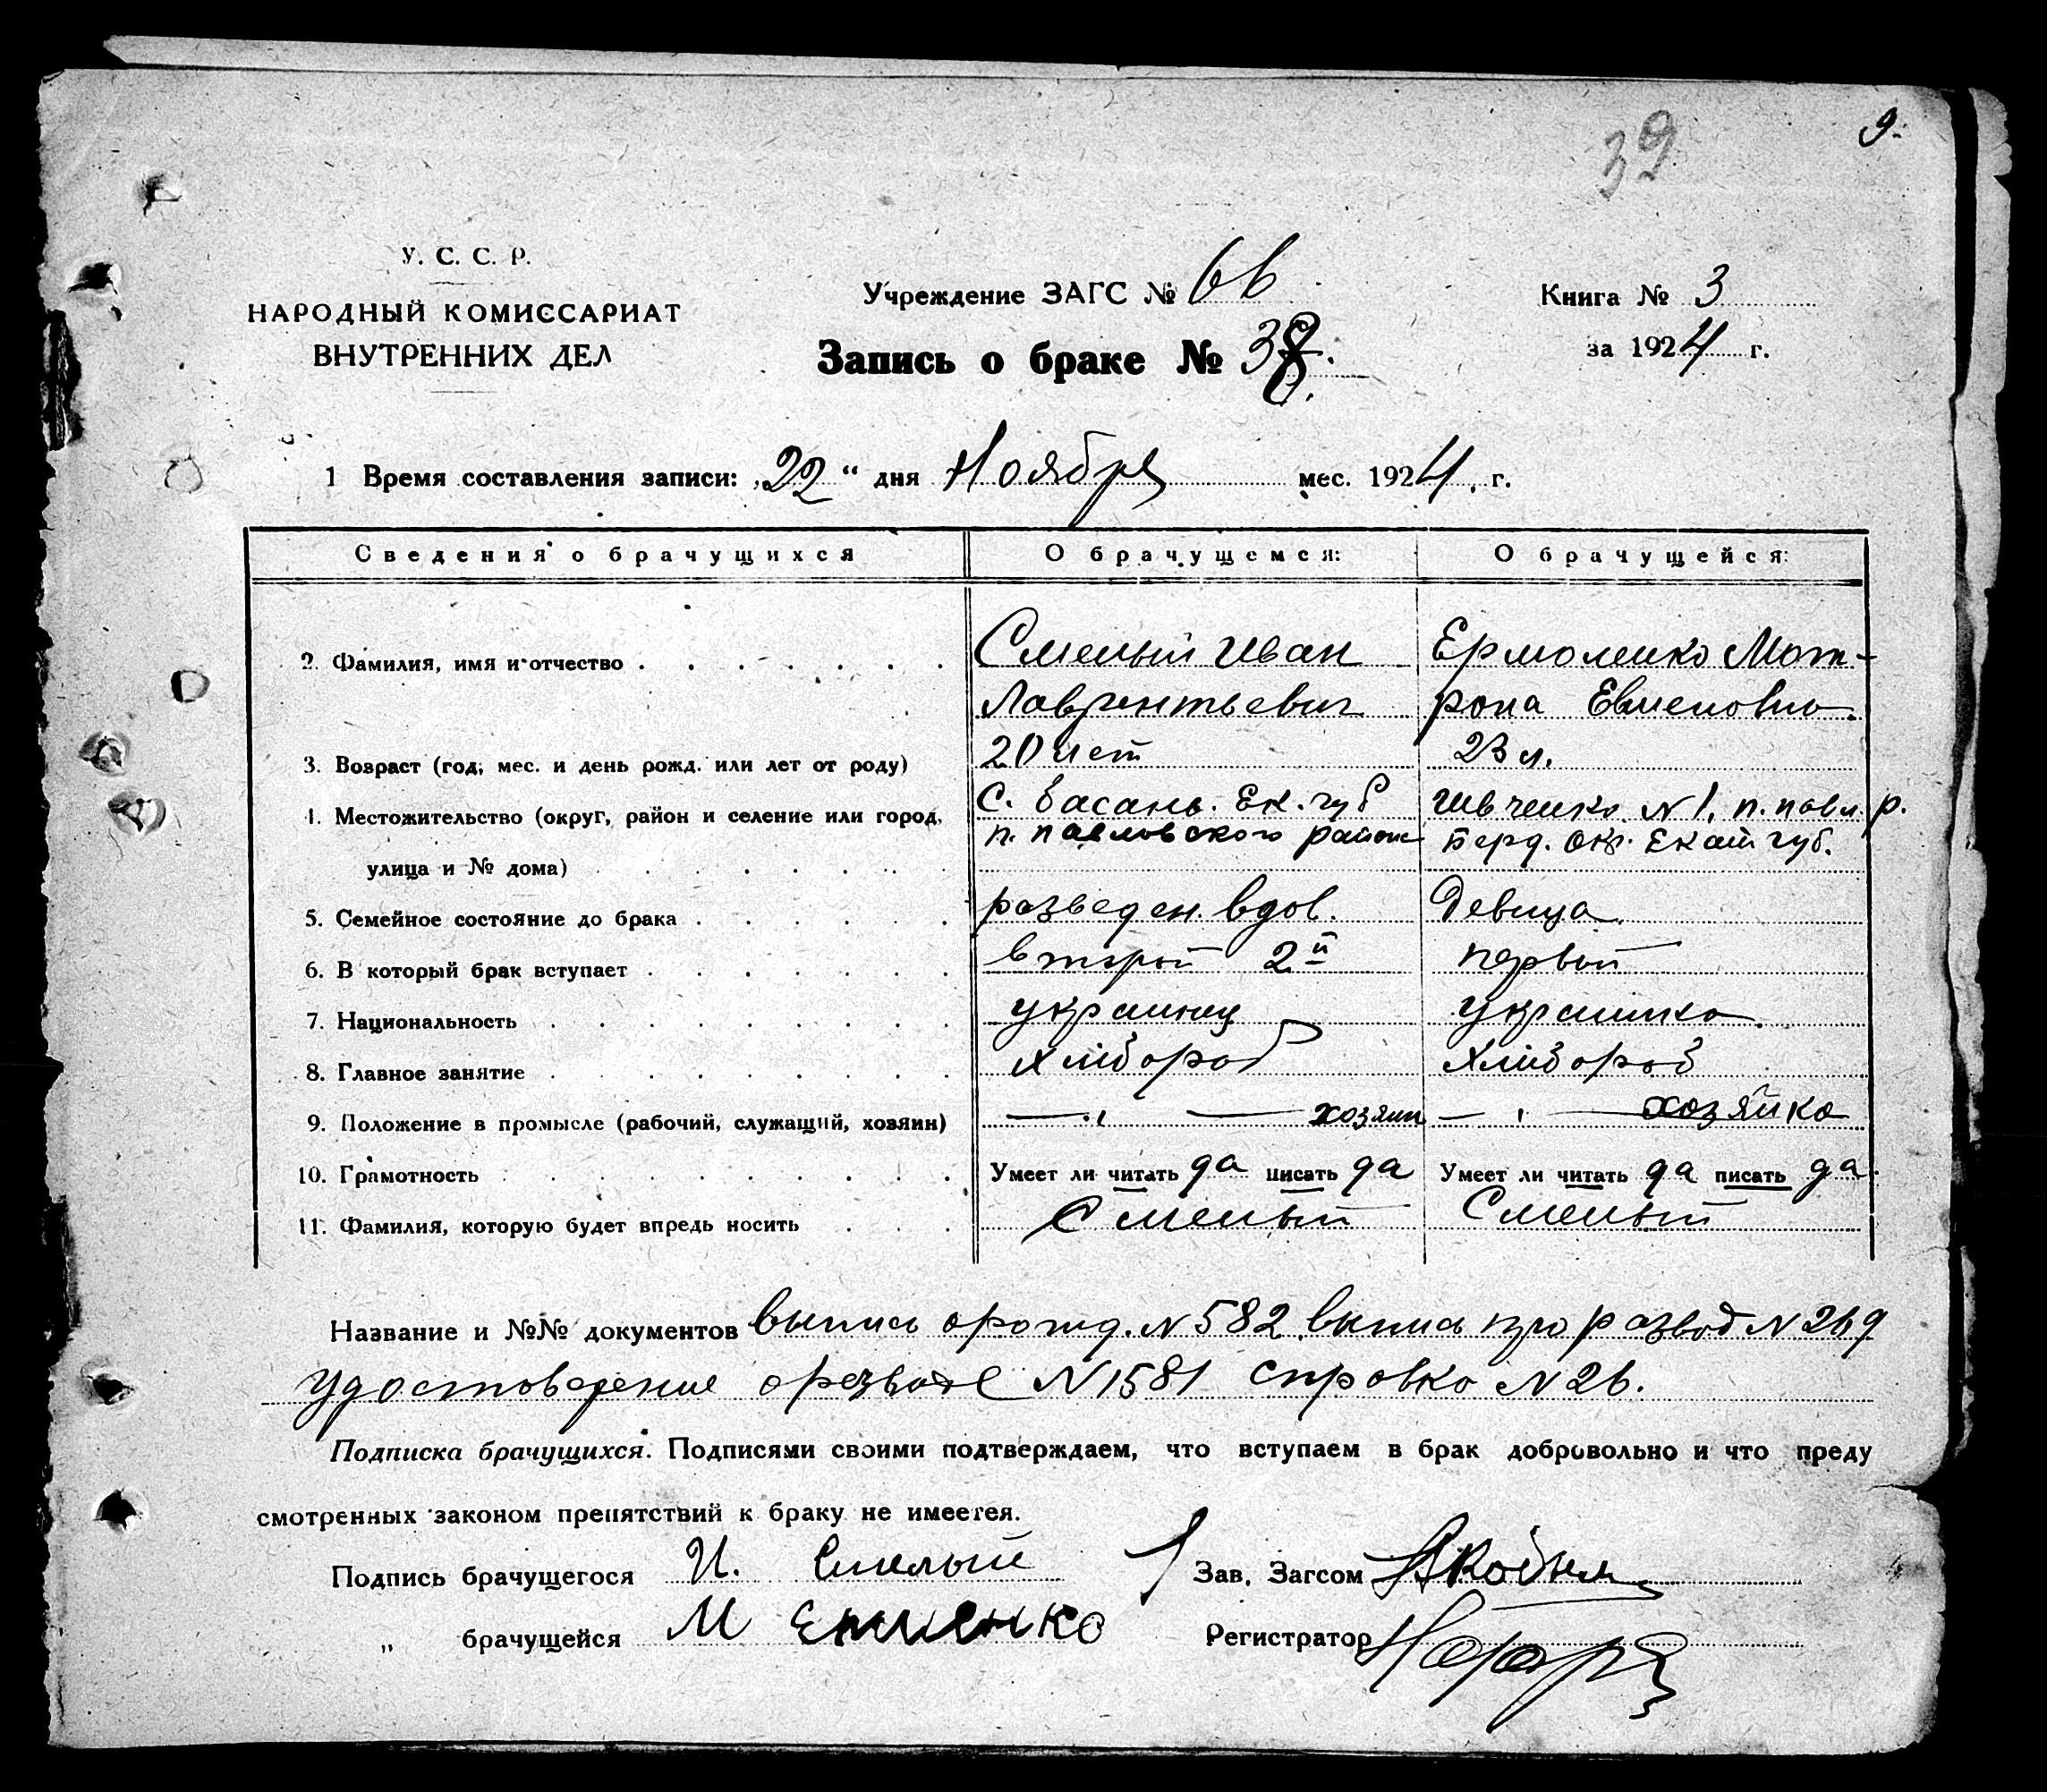 39
9.
У. С. С. Р.
НАРОДНЫЙ КОМИССАРИАТ
ВНУТРЕННИХ ДЕЛ
Учреждение ЗАГС №
Запись о браке №
Книга № 3
за 1924 г.
1 Время составления записи: „22“ дня Ноября мес. 1924 г.
Сведения о брачущихся О брачущемся: О брачущейся:
2. Фамилия, имя и отчество Смелый Иван Ермоленко Мот-
Лаврентьевич рона Евменовна
3. Возраст (год, мес. и день рожд. или лет от роду) 20 лет 23 л.
4. Местожительство (округ, район и селение или город, с. Басань. Ек. губ Шевченко N 1, п. павл. р.
п. павловского район Берд. Окр. Екат губ.
улица и № дома)
5. Семейное состояние до брака разведен. вдов. Девица
6. В который брак вступает второй 2й первый
7. Национальность украинец украинка
8. Главное занятие хлібороб хлібороб
9. Положение в промысле (рабочий, служащий, хозяин) — „ — хозяин — „ — хозяйка
10. Грамотность Умеет ли читать да писать да Умеет ли читать да писать да
11. Фамилия, которую будет впредь носить Смелый Смелый
Название и №№ документов выпись о рожд. N 582 выпись про развод N 269
удостоверение о разводе N 1581 справка N 26.
Подписка брачущихся. Подписями своими подтверждаем, что вступаем в брак добровольно и что преду
смотренных законом препятствий к браку не имеется.
Подпись брачущегося И. Смелый Зав. Загсом
„ брачущейся М Регистратор